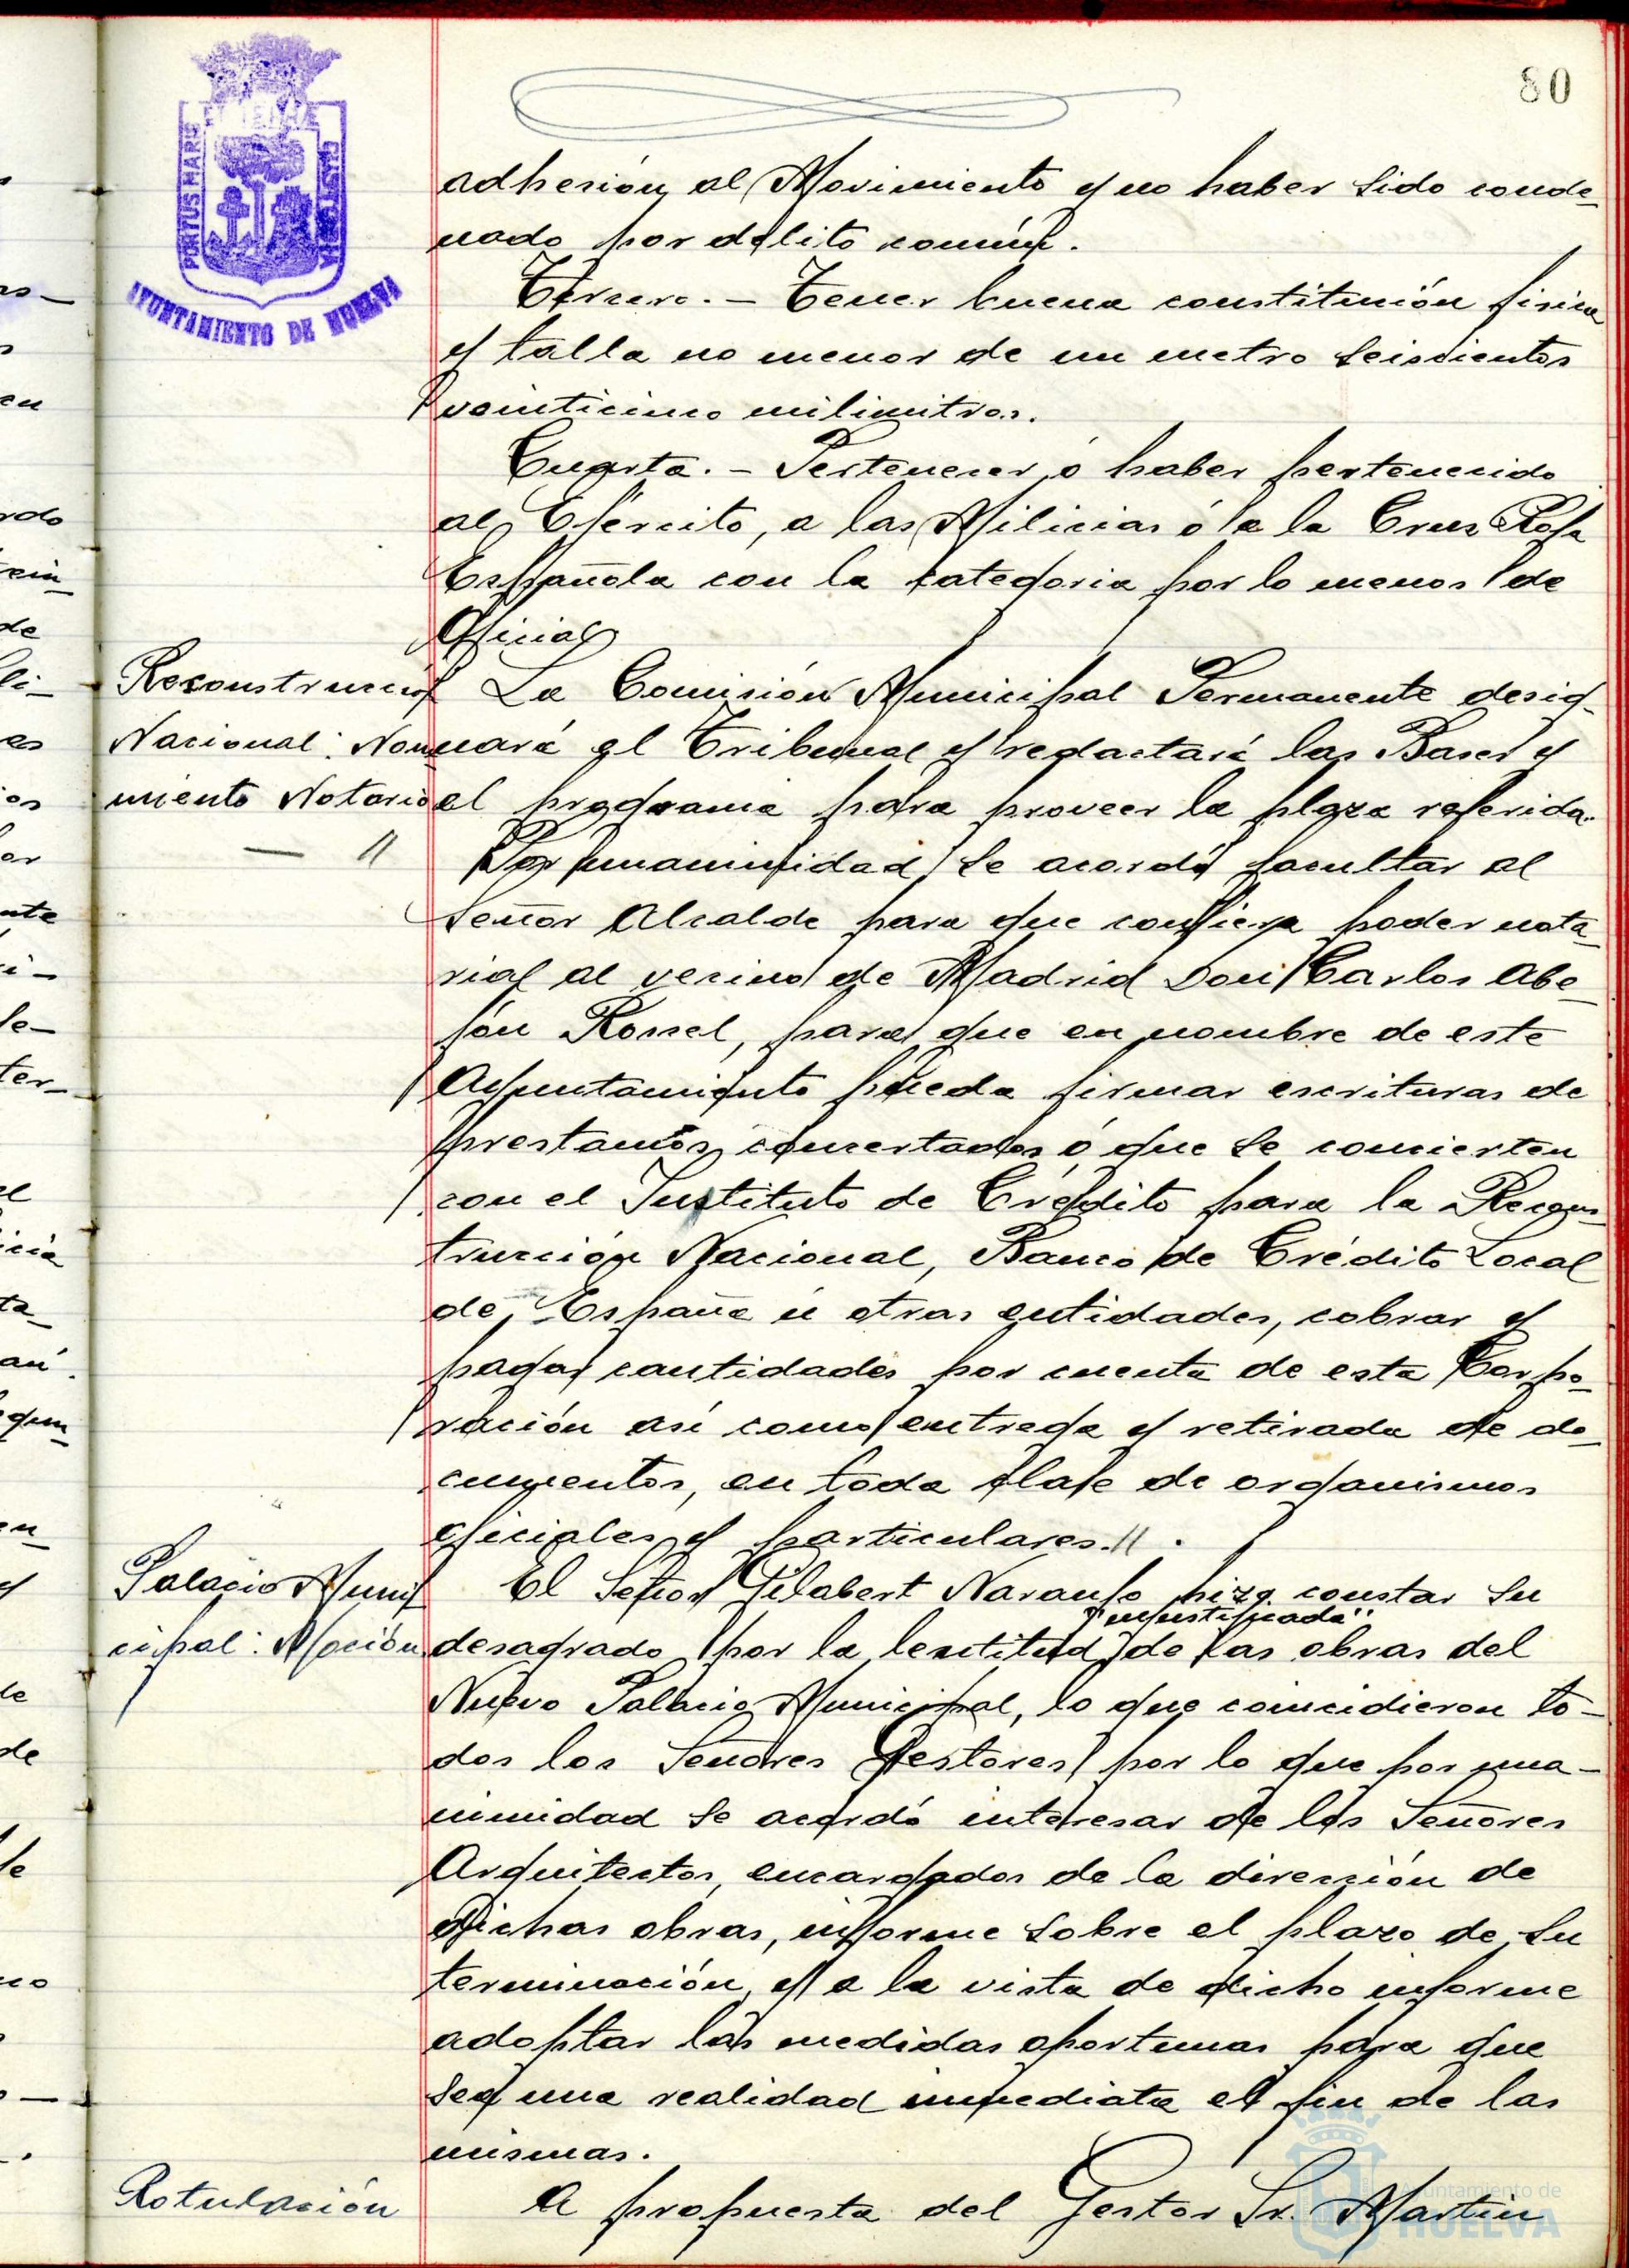 80
PORTUS MARIS ET TERRAE CUSTODIA
AYUNTAMIENTO DE HUELVA
adhesión al Movimiento y no haber sido conde-
nado por delito común.
Tercero.- Tener buena constitución física
y talla no menor de un metro seiscientos
veinticinco milimitros.
Cuarta.- Pertenecer ó haber pertenecido
al Ejército, a las Milicias ó a la Cruz Roja
Española con la categoria por lo menos de
Oficial
Reconstrucción
La Comisión Municipal Permanente desig-
Nacional: Nom
nará el Tribunal y redactará las Bases y
miento Notario
el programa para proveer la plaza referida.
— "
Por unanimidad se acordó facultar al
Señor Alcalde para que confiera poder nota-
rial al vecino de Madrid Don Carlos Abe-
jon Rossel, para que en nombre de este
Ayuntamiento pueda firmar escrituras de
prestamos concertados ó que se concierten
con el Instituto de Crédito para la Recons-
trucción Nacional, Banco de Crédito Local
de España u otras entidades, cobrar y
pagar cantidades por cuenta de esta Corpo-
ración así como entrega y retirada de do-
cumentos, en toda clase de organismos
oficiales y particulares. " .
Palacio Muni
El Señor Gilabert Naranjo hizo constar su
cipal: Moción
"injustificada"
desagrado por la lentitud de las obras del
Nuevo Palacio Municipal, lo que coincidieron to-
dos los Señores Gestores por lo que por una-
nimidad se acordó interesar de los Señores
Arquitectos, encargados de la dirección de
dichas obras, informe sobre el plazo de su
terminación y a la vista de dicho informe
adoptar las medidas oportunas para que
sea una realidad inmediata el fin de las
mismas.
Rotulación
A propuesta del Gestor Sr. Martin
Ayuntamiento de
HUELVA